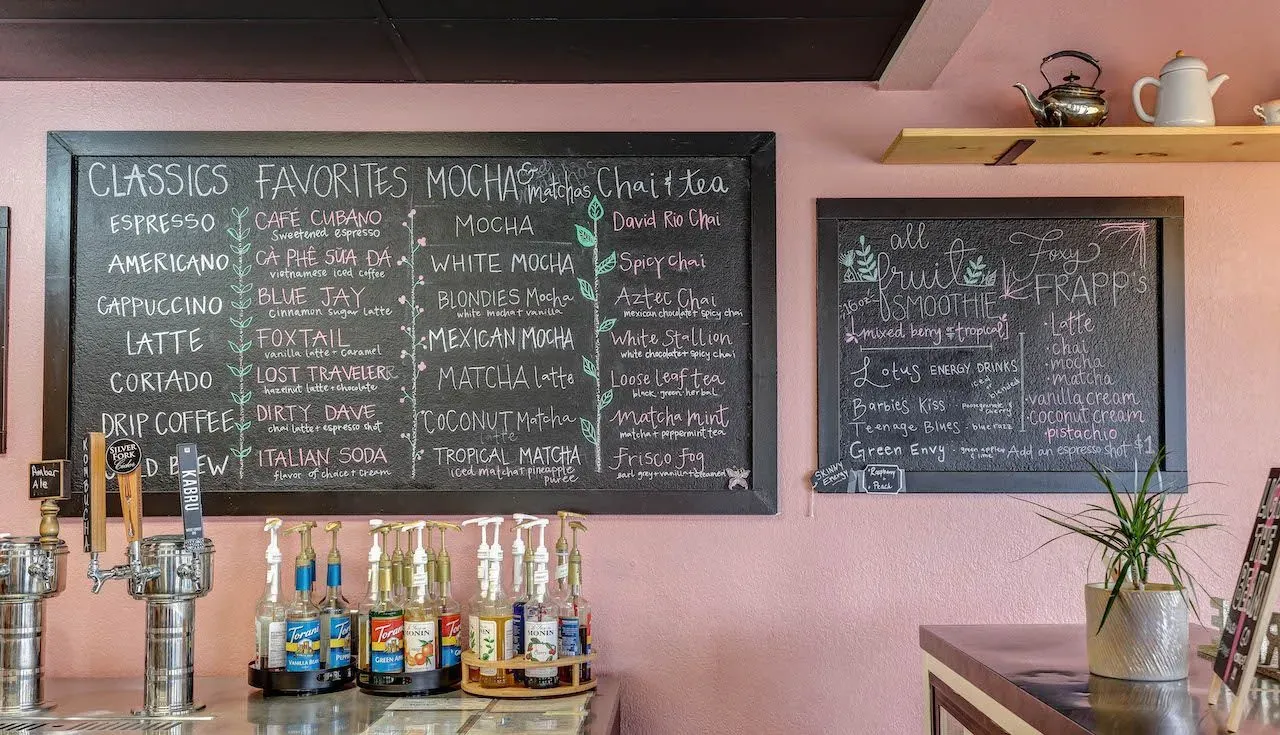 CLASSICS
ESPRESSO
AMERICANO
CAPPUCCINO
LATTE
CORTADO
DRIP COFFEE
D BREW
FAVORITES
CAFÉ CUBANO
Sweetened espresso
CÀ PHÊ SỮA DÁ
vietnamese iced coffee
BLUE JAY
cinnamon sugar latte
FOXTAIL
vanilla latte + caramel
LOST TRAVELER
hazelnut latte + chocolate
DIRTY DAVE
chai latte + espresso shot
ITALIAN SODA
flavor of choice + cream
MOCHA & matchas
MOCHA
WHITE MOCHA
BLONDIES Mocha
white mocha + vanilla
MEXICAN MOCHA
MATCHA latte
COCONUT Matcha
Latte
TROPICAL MATCHA
iced matcha + pineapple
puree
Chai & tea
David Rio Chai
Spicy chai
Aztec Chai
mexican chocolate + spicy chai
White Stallion
white chocolate + spicy chai
Loose leaf tea
black, green, herbal
matcha mint
matcha + peppermint tea
Frisco fog
earl grey + vanilla + steamed
all
fruit
16oz
SMOOTHIE
[mixed berry & tropical]
Lotus ENERGY DRINKS
iced
Barbies Kiss · pomegranate & cherry
Teenage Blues · blue razz
Green Envy · green apple & lime
Add an espresso shot $1
Foxy
FRAPP's
· latte
· chai
· mocha
· matcha
· vanilla cream
· coconut cream
· pistachio
SKINNY
Energy
Raspberry
+ Peach
Amber
Ale
KOMBUCHA
SILVER
FORK
KABRU
Torani
VANILLA BEAN
Torani
Torani
GREEN APPLE
MONIN
Torani
MONIN